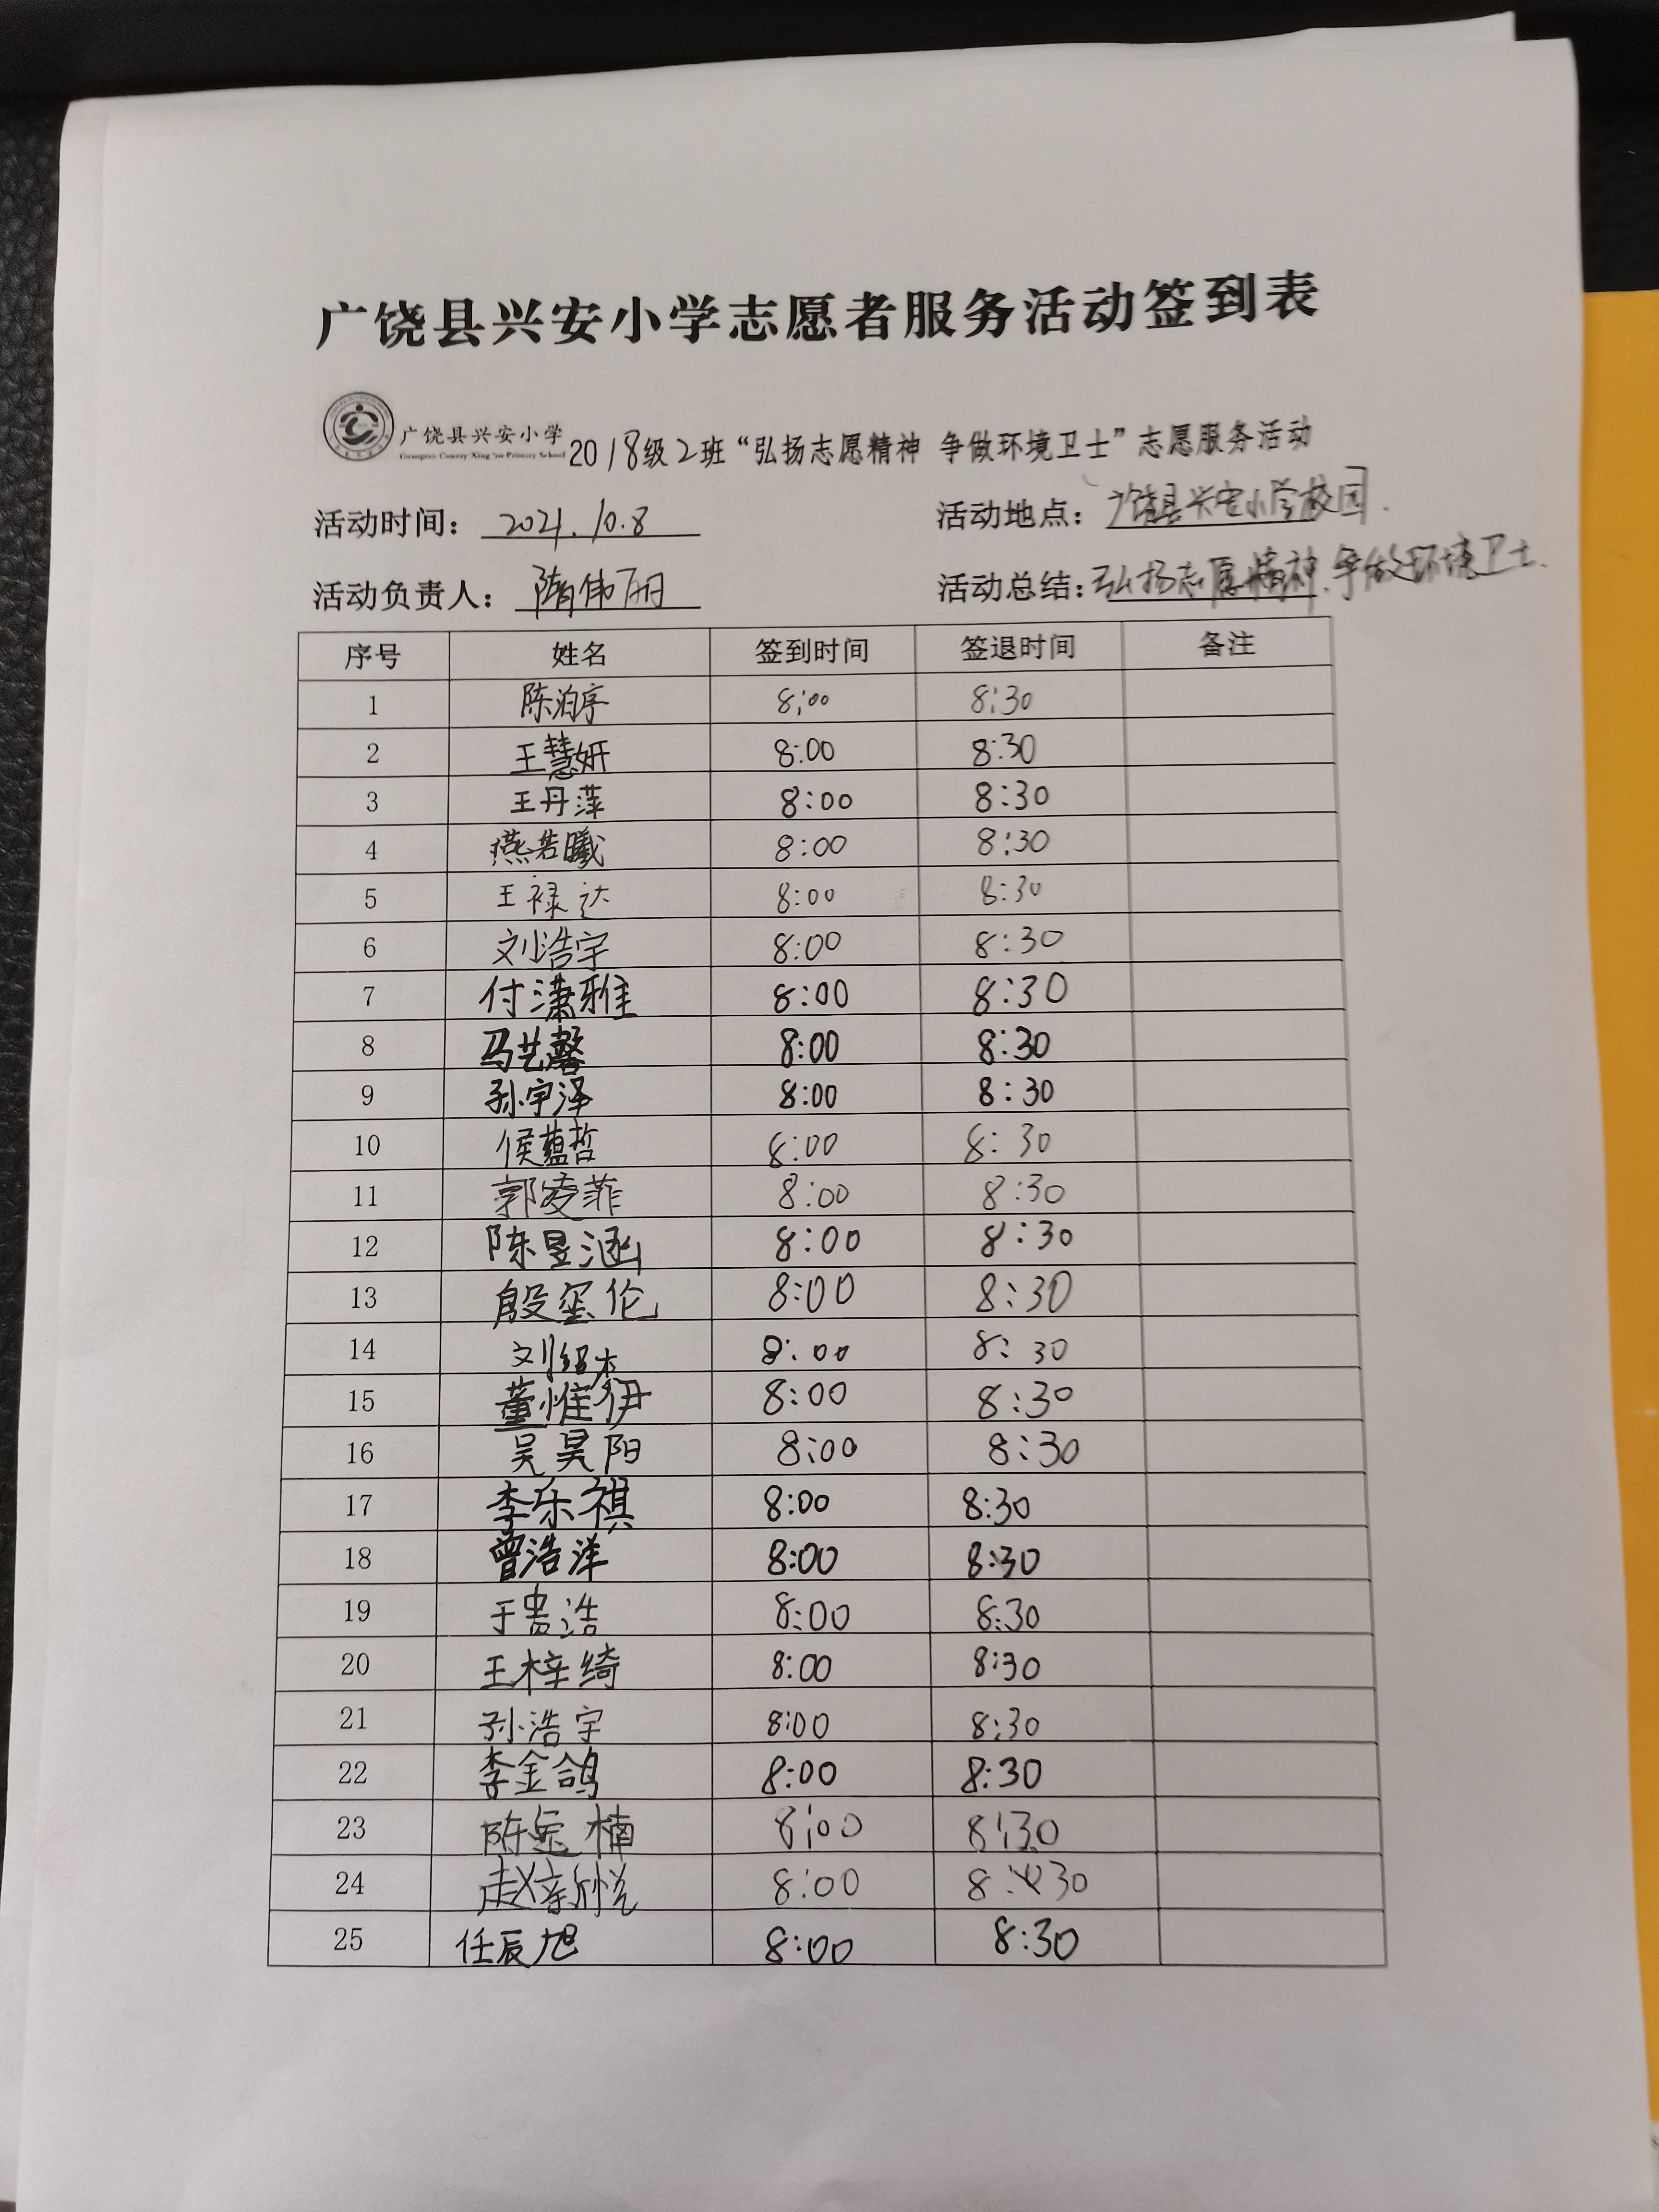 广饶县兴安小学志愿者服务活动签到表
广饶县兴安小学
Guangrao County Xing'an Primary School
2018级2班“弘扬志愿精神 争做环境卫士”志愿服务活动
活动时间：2021.10.8 活动地点：广饶县兴安小学校园.
活动负责人：隋伟丽 活动总结：弘扬志愿精神.争做环境卫士.
序号 姓名 签到时间 签退时间 备注
1 陈泊宇 8:00 8:30
2 王慧妍 8:00 8:30
3 王丹萍 8:00 8:30
4 燕若曦 8:00 8:30
5 王禄达 8:00 8:30
6 刘浩宇 8:00 8:30
7 付潇雅 8:00 8:30
8 马艺馨 8:00 8:30
9 孙宇泽 8:00 8:30
10 侯蕴哲 8:00 8:30
11 郭凌菲 8:00 8:30
12 陈昱涵 8:00 8:30
13 殷玺伦 8:00 8:30
14 刘绍杰 8:00 8:30
15 董惟伊 8:00 8:30
16 吴昊阳 8:00 8:30
17 李乐祺 8:00 8:30
18 曾浩洋 8:00 8:30
19 于贵浩 8:00 8:30
20 王梓绮 8:00 8:30
21 孙浩宇 8:00 8:30
22 李金鸽 8:00 8:30
23 陈 楠 8:00 8:30
24 赵 悦 8:00 8:30
25 任辰旭 8:00 8:30